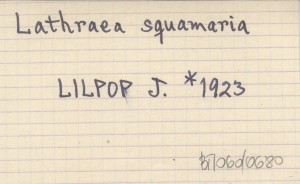 Lathraea squamaria
LILPOP J. *1923